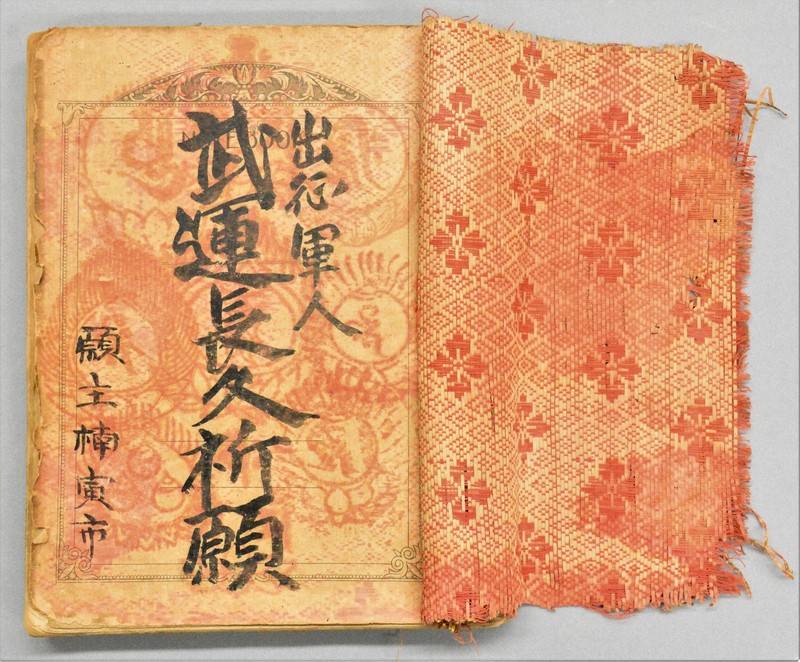 出征軍人
武運長久祈願
願主楠寅市